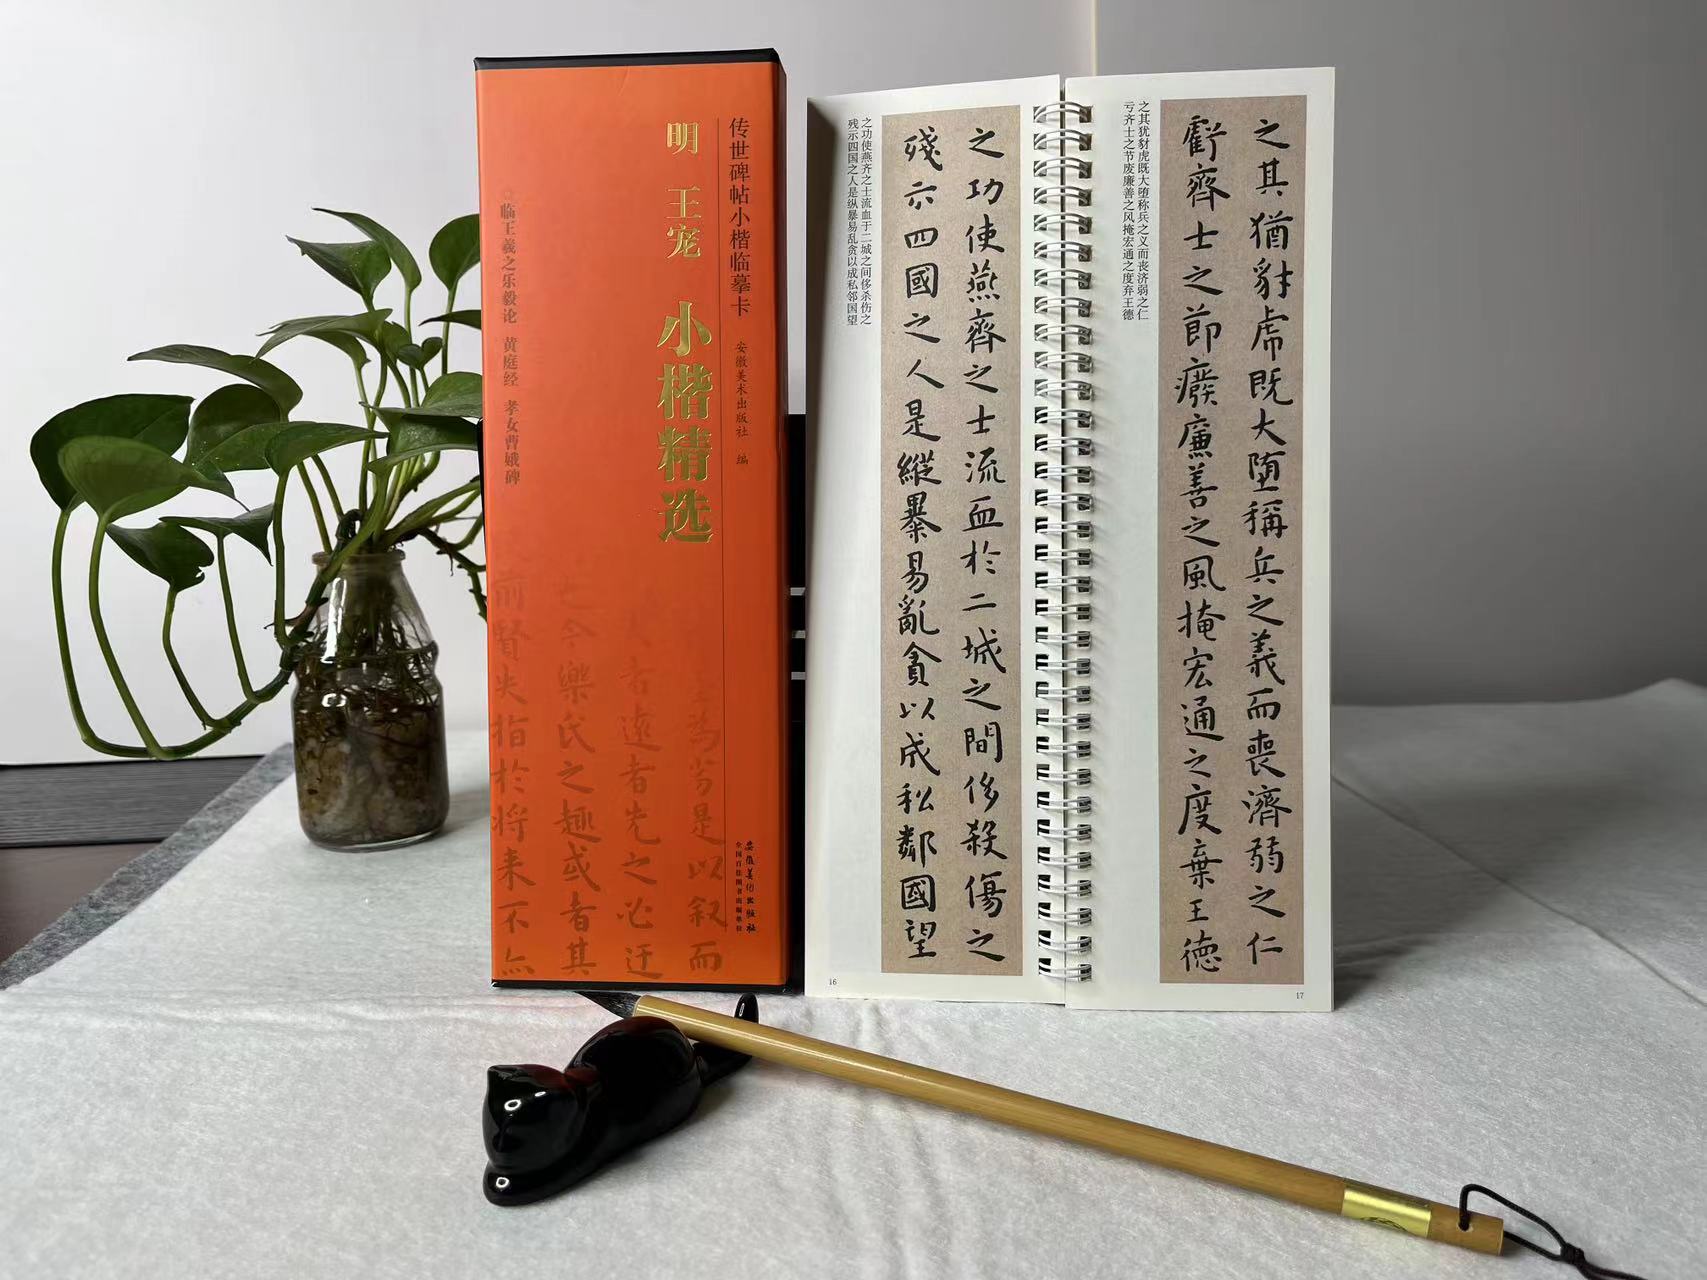 传世碑帖小楷临摹卡
安徽美术出版社 编
明 王宠 小楷精选
临王羲之乐毅论 黄庭经 孝女曹娥碑
安徽美术出版社
全国百佳图书出版单位
是以叙而
遠者先之必迂
令樂氏之趣或者其
前賢失指於将来不亦
之功使燕齐之士流血于二城之间侈杀伤之
残示四国之人是纵暴易乱贪以成私邻国望
之功使燕齊之士流血於二城之間侈殺傷之
殘示四國之人是縱暴易亂貪以成私鄰國望
16
之其犹豺虎既大堕称兵之义而丧济弱之仁
亏齐士之节废廉善之风掩宏通之度弃王德
之其猶豺虎既大堕稱兵之義而喪濟弱之仁
虧齊士之節癈廉善之風掩宏通之度棄王德
17